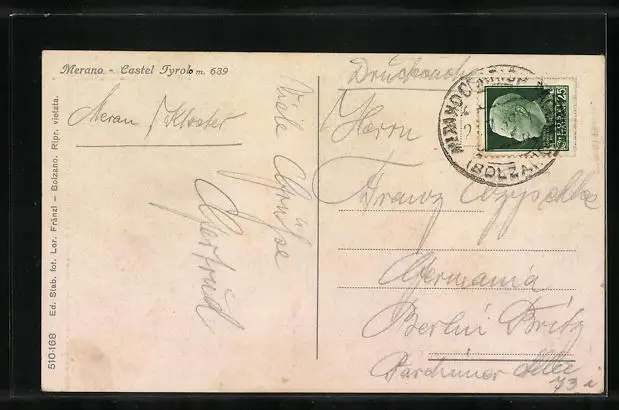 Merano - Castel Tyrolo m. 639
Meran / Kloster
Viele Grüsse
Gertrud
510-168 Ed. Stab. fot. Lor. Fränzl - Bolzano. Ripr. vietata.
Drucksache
(BOLZA
25
Herrn
Franz
Germania
Berlin Britz
Parchimer Allee
73a